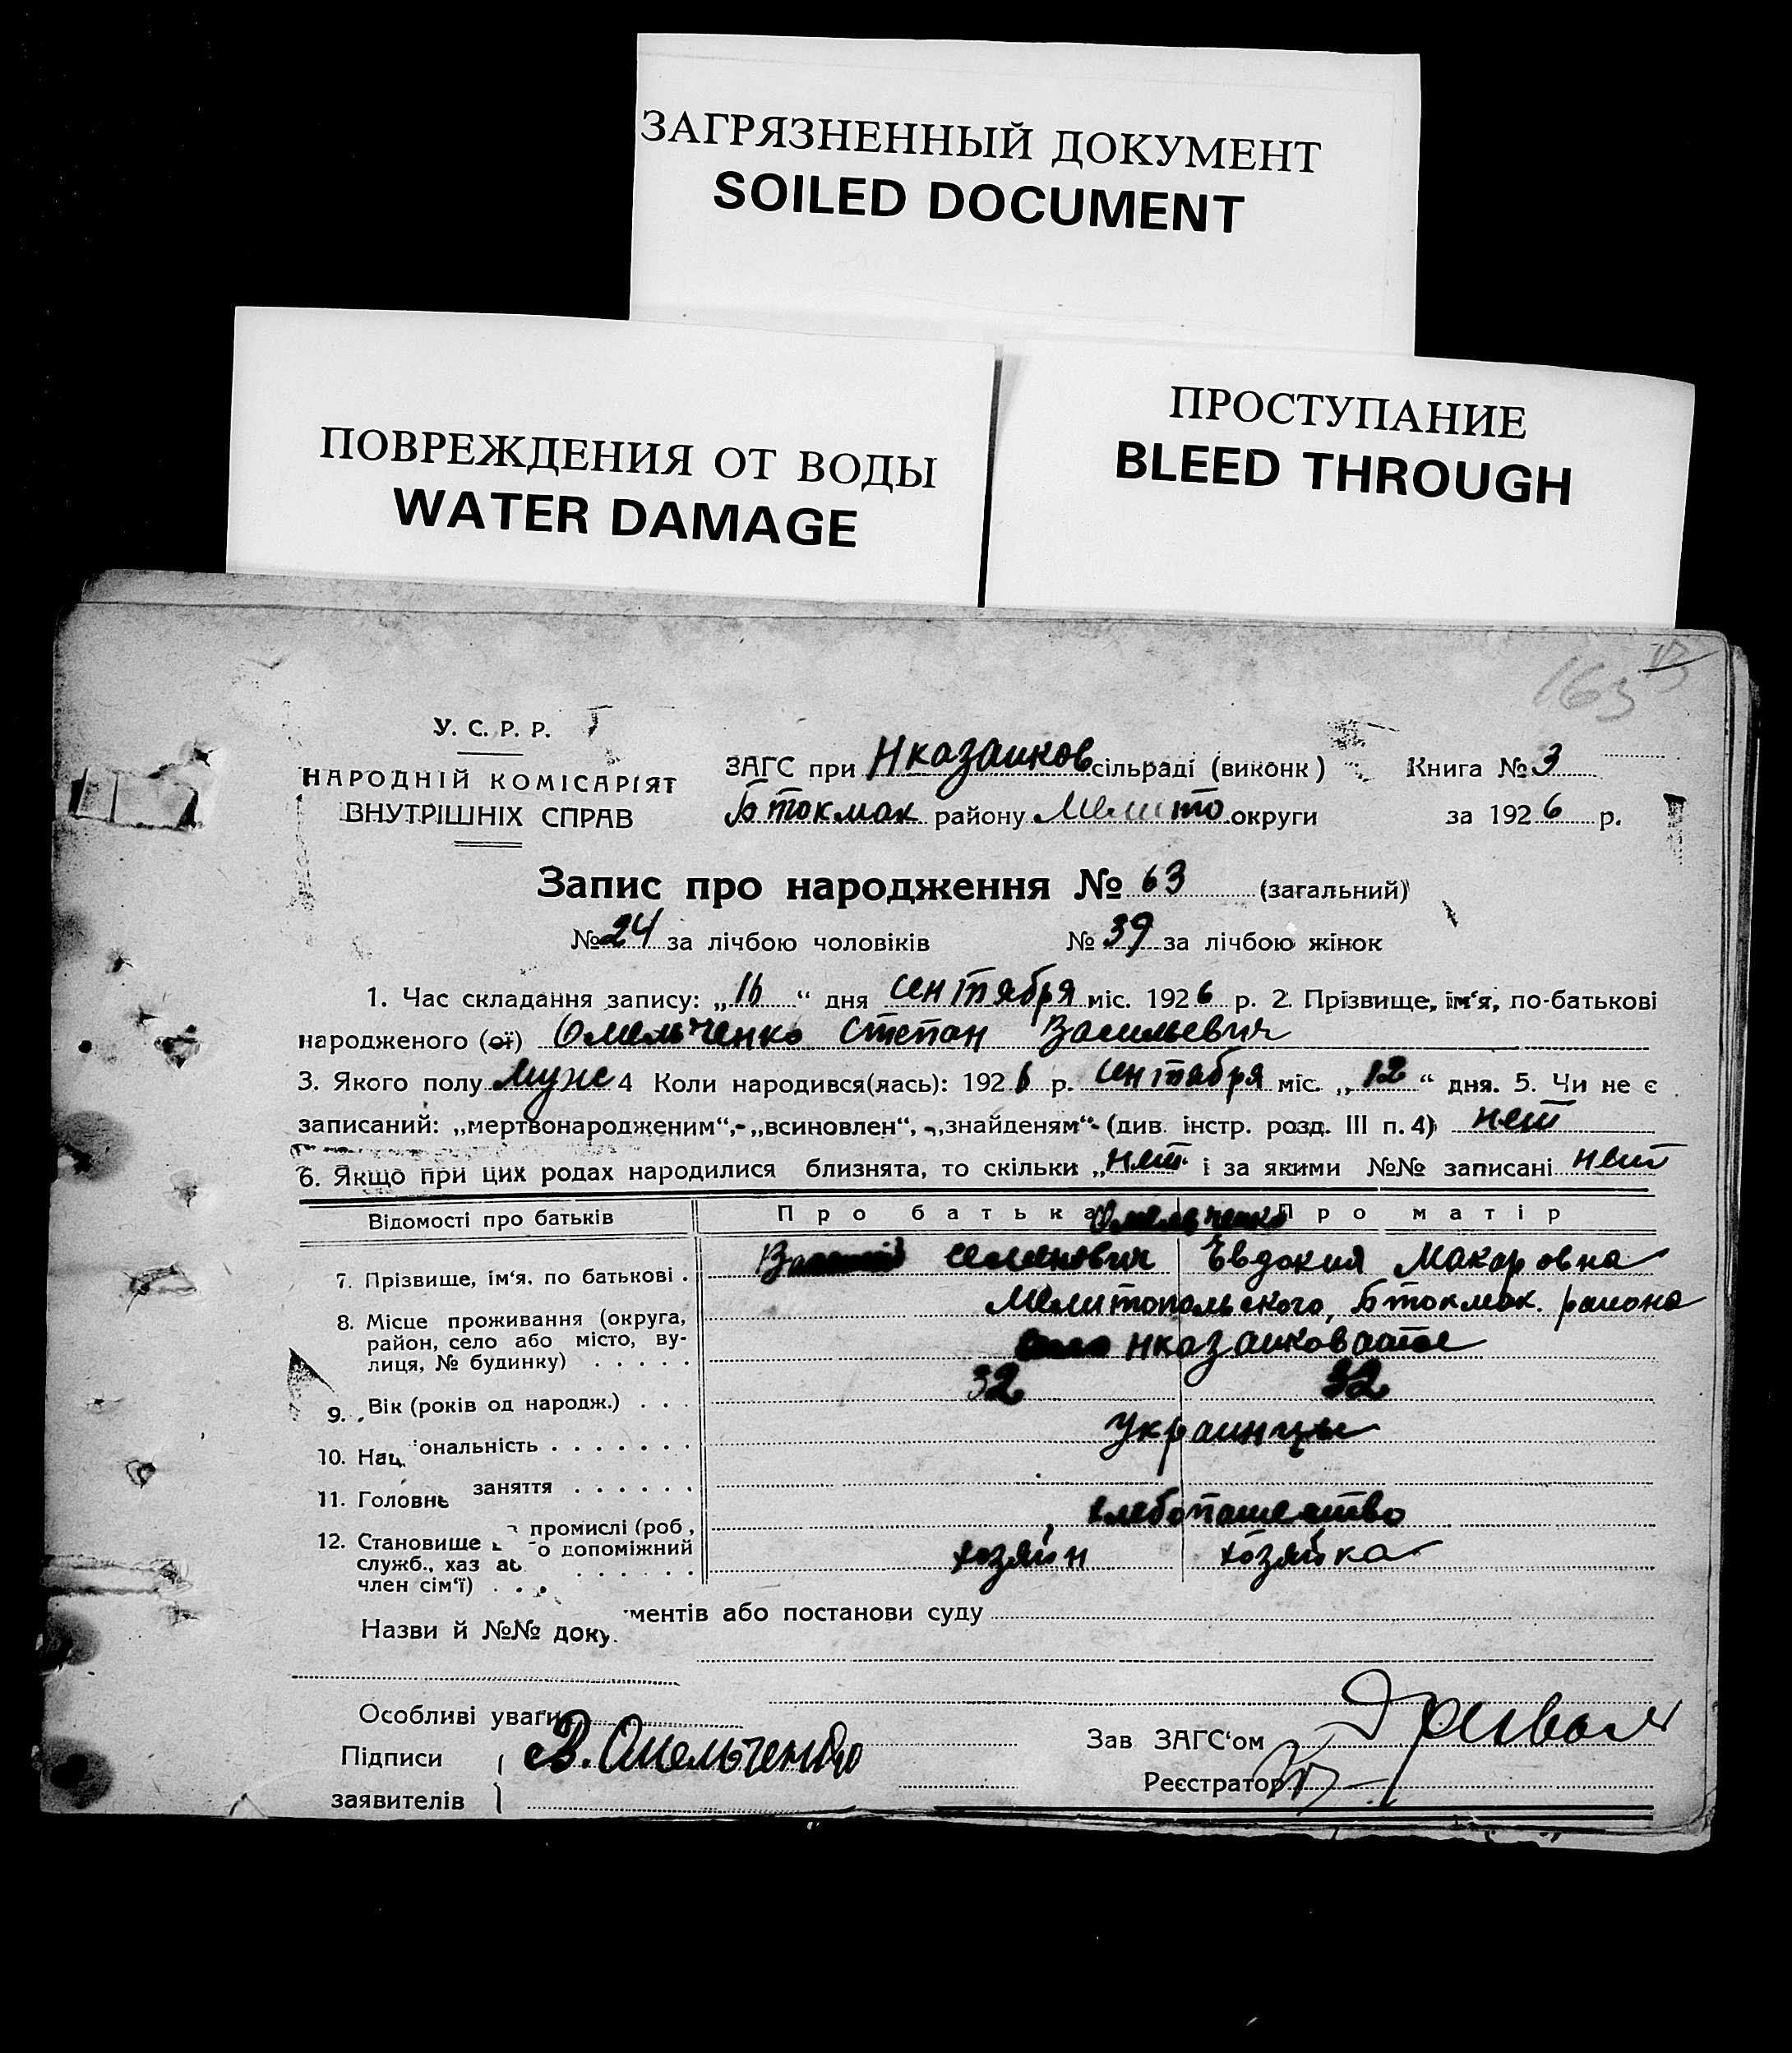 ЗАГРЯЗНЕННЫЙ ДОКУМЕНТ
SOILED DOCUMENT
ПОВРЕЖДЕНИЯ ОТ ВОДЫ
WATER DAMAGE
ПРОСТУПАНИЕ
BLEED THROUGH
163
У. С. Р. Р.
НАРОДНІЙ КОМІСАРІЯТ
ВНУТРІШНІХ СПРАВ
ЗАГС при Нказанков сільраді (виконк) Книга № 3
Бтокмак району Мелито округи за 1926 р.
Запис про народження № 63 (загальний)
№ 24 за лічбою чоловіків № 39 за лічбою жінок
1. Час складання запису: „16“ дня сентября міс. 1926 р. 2. Прізвище, ім‘я, по-батькові
народженого (ої) Омельченко Степан Васильевич
3. Якого полу муж 4 Коли народився(лась): 1926 р. сентября міс. „12“ дня. 5. Чи не є
записаний: „мертвонародженим“,-„всиновлен“, -„знайденям“- (див. інстр. розд. III п. 4) нет
6. Якщо при цих родах народилися близнята, то скільки „нет“ і за якими №№ записані нет
Відомості про батьків Про батька Про матір
Омельченко
7. Прізвище, ім‘я, по батькові . Семенович Евдокия Макаровна
8. Місце проживання (округа, район, село або місто, вулиця, № будинку) . . . . . Мелитопольского, Бтокмак. района
нказанковатое
9. Вік (років од народж.) . . . 32 32
10. Національність . . . . . . . Украинцы
11. Головнє заняття . . . . . .
хлебопашество
12. Становище промислі (роб, служб., хаз або допоміжний член сім‘ї) . . . хозяин хозяйка
Назви й №№ документів або постанови суду
Особливі уваги
Підписи В. Омельченко Зав ЗАГС‘ом
заявителів Реєстратор